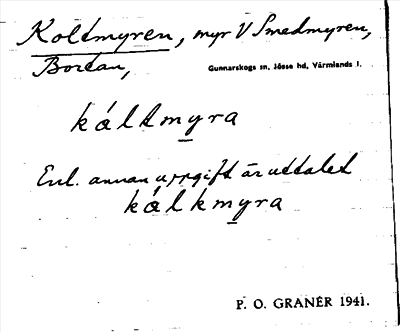 Koltmyren, myr V Smedmyren,
Bortan,
Gunnarskogs sn, Jösse hd, Värmlands l.
kål̵tmyra
Enl. annan uppgift är uttalet
kålkmyra
P. O. GRANÉR 1941.